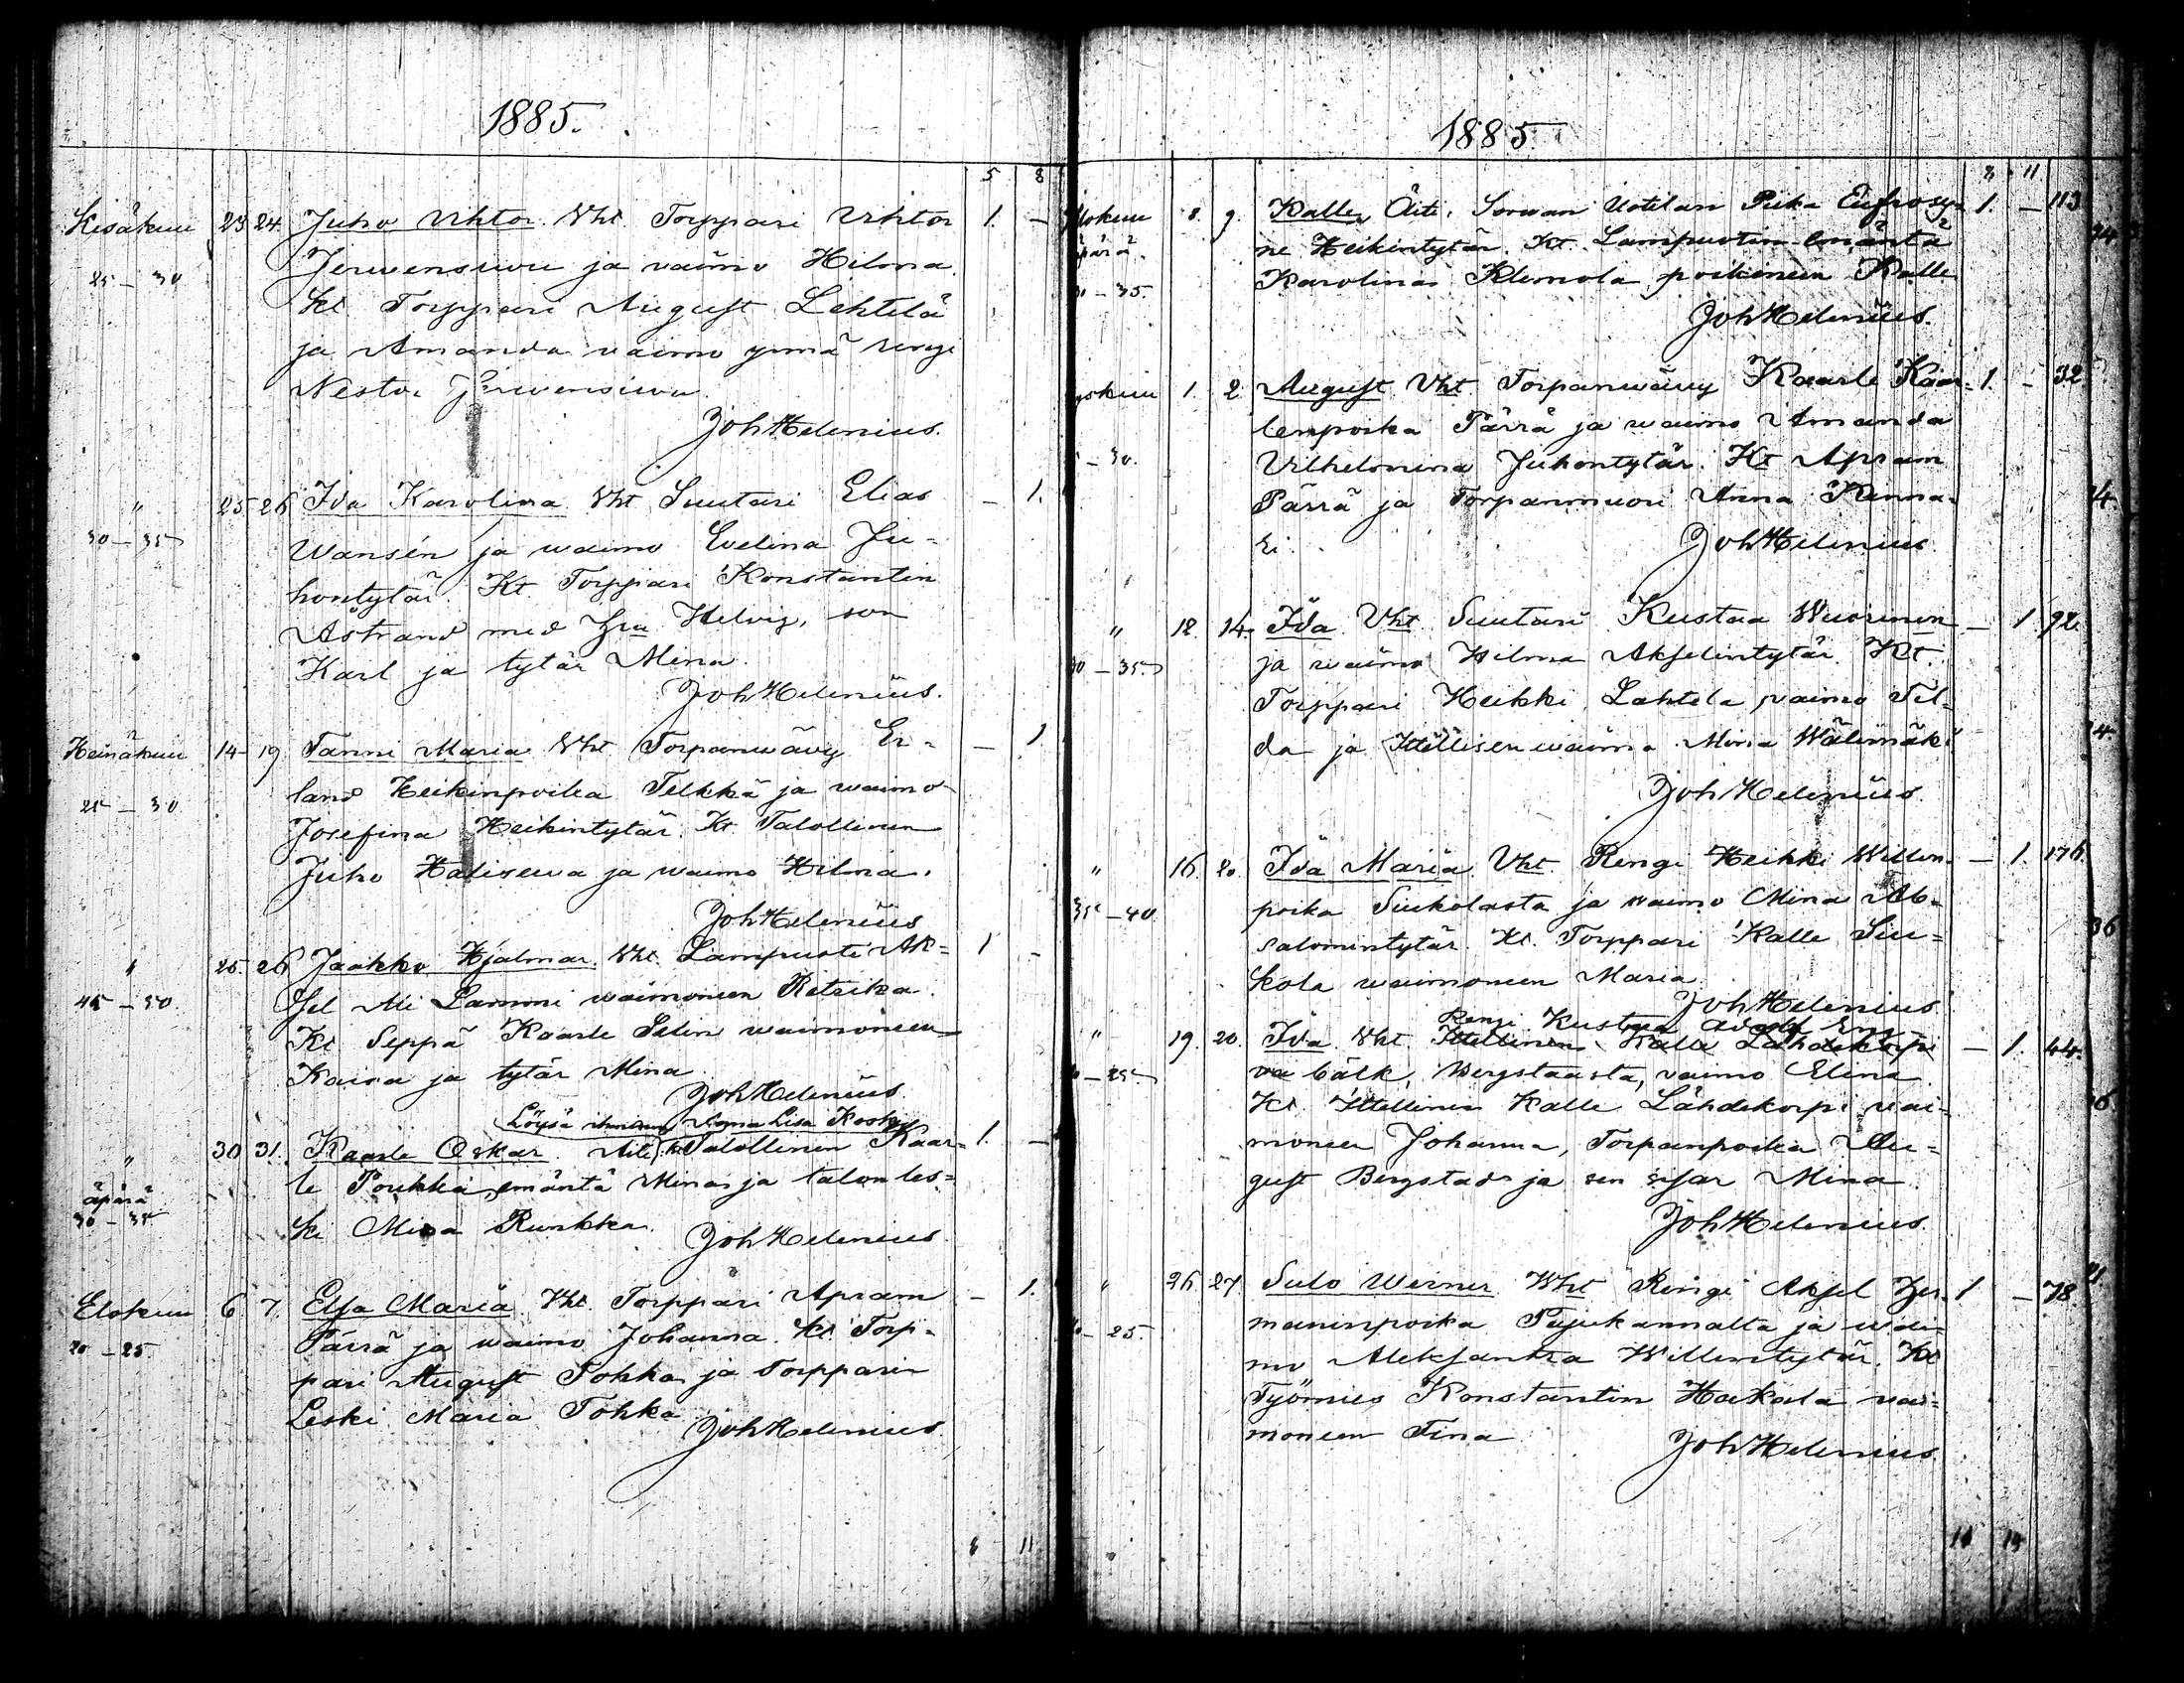 1885.
5 8
Kesäkuu 23 24 Juho Vihtor Vht Torppari Vihtor 1. —
25 – 30 Jerwensiwu ja vaimo Hilma.
Kt Torppari August Lehtelä
ja Amanda vaimo ynnä renge
Nestor Jerwensiwu
JohHelenius.
" 25 26 Ida Karolina Vht Suutari Elias — 1.
30 – 35 Wansén ja waimo Evelina Ju-
hontytär. Kt Torppari Konstantin
Åstrand med Hru Helvig, son
Karl ja tytär Mina.
JohHelenius.
Heinäkuu 14 19 Fanni Maria Vht Torpanwävy Er- — 1
25 – 30 land Heikinpoika Telkkä ja waimo
Josefina Heikintytär. Kt. Talollinen
Juho Halisewa ja waimo Hilma.
JohHelenius
" 25. 26 Jaakko Hjalmar. Vht. Lampuoti Ak- 1 -
45 – 50. sel Ali Lammi waimoneen Retrika.
Kt Seppä Kaarle Selin waimoneen
Kaisa ja tytär Mina
JohHelenius.
Löysä ihminen Anna Lisa Kosky
" 30 31. Kaarle Oskar. Äiti Kt Talollinen Kaar- 1. —
äpärä le Poukka, emäntä Mina ja talon les-
30 – 35 ki Mina Runkka.
JohHelenius
Elokuu 6 7. Elsa Maria. Vht. Torppari Apram — 1.
20 – 25. Pärrä ja waimo Johanna. Kt Torp-
pari August Tohka ja Torpparin
Leski Maria Tohka
JohHelenius.
8 11
1885.
8 11
Elokuu 8. 9. Kalle, Äiti, Sorwan Uotilan Piika Eufrosy- 1. — 113
äpärä. ne Heikintytär. Kt. Lampuotin emäntä
30 – 35. Karolina Klemola, poikineen Kalle
JohHelenius.
Syyskuu 1. 2. August Vht. Torpanwävy Kaarle Kaar- 1. — 32
lenpoika Pärrä ja waimo Amanda
– 30. Vilhelmina Juhontytär. Kt Apram
Pärrä ja Torpanmuori Anna Kinna-
ri.
JohHelenius
" 12. 14. Ida. Vht. Suutari Kustaa Wuorinen — 1 92.
30 – 35. ja waimo Hilma Akselintytär. Kt.
Torppari Heikki Lahtela, vaimo Til-
da ja Itellisen waimo Mina Wälimäki
JohHelenius.
" 16. 20. Ida Maria. Vht. Rengi Heikki Willen- — 1. 176
35 – 40 poika Siukolasta ja waimo Mina Ab-
salomintytär. Kt. Torppari Kalle Siu-
kola waimoneen Maria.
JohHelenius
Rengi Kustaa Adolf
" 19. 20. Ida. Vht. Itellinen Kalle Lähdekorpi — 1. 44.
– 25. bäck, Bergstadista, vaimo Elina
Kt. Itellinen Kalle Lähdekorpi vai-
moneen Johanna, Torpanpoika Au-
gust Bergstad ja sen sisar Mina
JohHelenius.
" 26 27 Sulo Werner. Vht Rengi Aksel Her- 1 — 78.
– 25. maninpoika Pajukannalta ja wai-
mo Aleksantra Willentytär. Kt
Työmies Konstantin Hakala vai-
moneen Fina
JohHelenius.